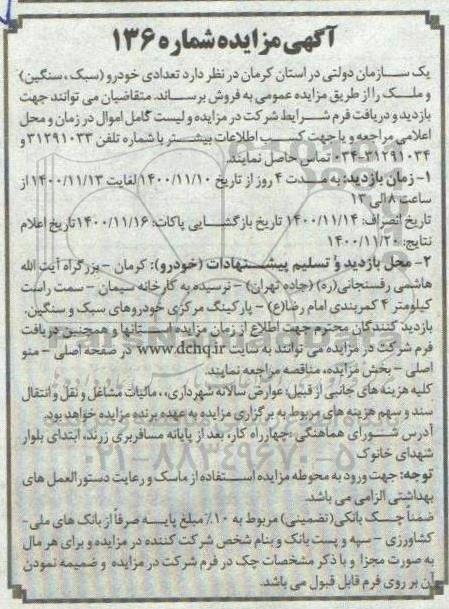 آگهی مزایده شماره ۱۳۶
یک سازمان دولتی در استان کرمان در نظر دارد تعدادی خودرو (سبک ، سنگین)
و ملک را از طریق مزایده عمومی به فروش برساند. متقاضیان می توانند جهت
بازدید و دریافت فرم شرایط شرکت در مزایده و لیست کامل اموال در زمان و محل
اعلامی مراجعه و یا جهت کسب اطلاعات بیشتر با شماره تلفن ۳۱۲۹۱۰۳۳ و
۰۳۴-۳۱۲۹۱۰۳۴ تماس حاصل نمایند.
۱- زمان بازدید: به مدت ۴ روز از تاریخ ۱۴۰۰/۱۱/۱۰ لغایت ۱۴۰۰/۱۱/۱۳ از
ساعت ۸ الی ۱۳
تاریخ انصراف: ۱۴۰۰/۱۱/۱۴ تاریخ بازگشایی پاکات: ۱۴۰۰/۱۱/۱۶ تاریخ اعلام
نتایج: ۱۴۰۰/۱۱/۲۰
۲- محل بازدید و تسلیم پیشنهادات (خودرو): کرمان - بزرگراه آیت الله
هاشمی رفسنجانی(ره) (جاده تهران) - نرسیده به کارخانه سیمان - سمت راست
کیلومتر ۴ کمربندی امام رضا(ع) - پارکینگ مرکزی خودروهای سبک و سنگین.
بازدید کنندگان محترم جهت اطلاع از زمان مزایده استانها و همچنین دریافت
فرم شرکت در مزایده می توانند به سایت www.dchq.ir در صفحه اصلی - منو
اصلی - بخش مزایده، مناقصه مراجعه نمایند.
کلیه هزینه های جانبی از قبیل: عوارض سالانه شهرداری،، مالیات مشاغل و نقل و انتقال
سند و سهم هزینه های مربوط به برگزاری مزایده به عهده برنده مزایده خواهد بود.
آدرس شورای هماهنگی: چهارراه کار، بعد از پایانه مسافربری زرند، ابتدای بلوار
شهدای خانوک
توجه: جهت ورود به محوطه مزایده استفاده از ماسک و رعایت دستورالعمل های
بهداشتی الزامی می باشد.
ضمناً چک بانکی(تضمینی) مربوط به ۱۰٪ مبلغ پایه صرفاً از بانک های ملی-
کشاورزی - سپه و پست بانک و بنام شخص شرکت کننده در مزایده و برای هر مال
به صورت مجزا و با ذکر مشخصات چک در فرم شرکت در مزایده و ضمیمه نمودن
آن بر روی فرم قابل قبول می باشد.
۰۲۱-۸۸۳۴۹۶۷۰-۵